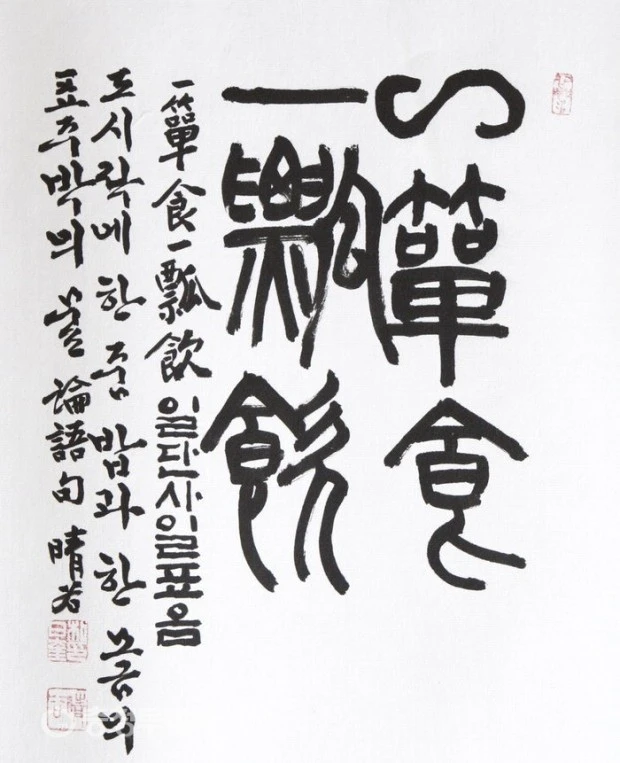 一簞食
一瓢飮
一簞食一瓢飮 일단사일표음
도시락에 한 줌 밥과 한 모금의
표주박의 물 論語句 晴